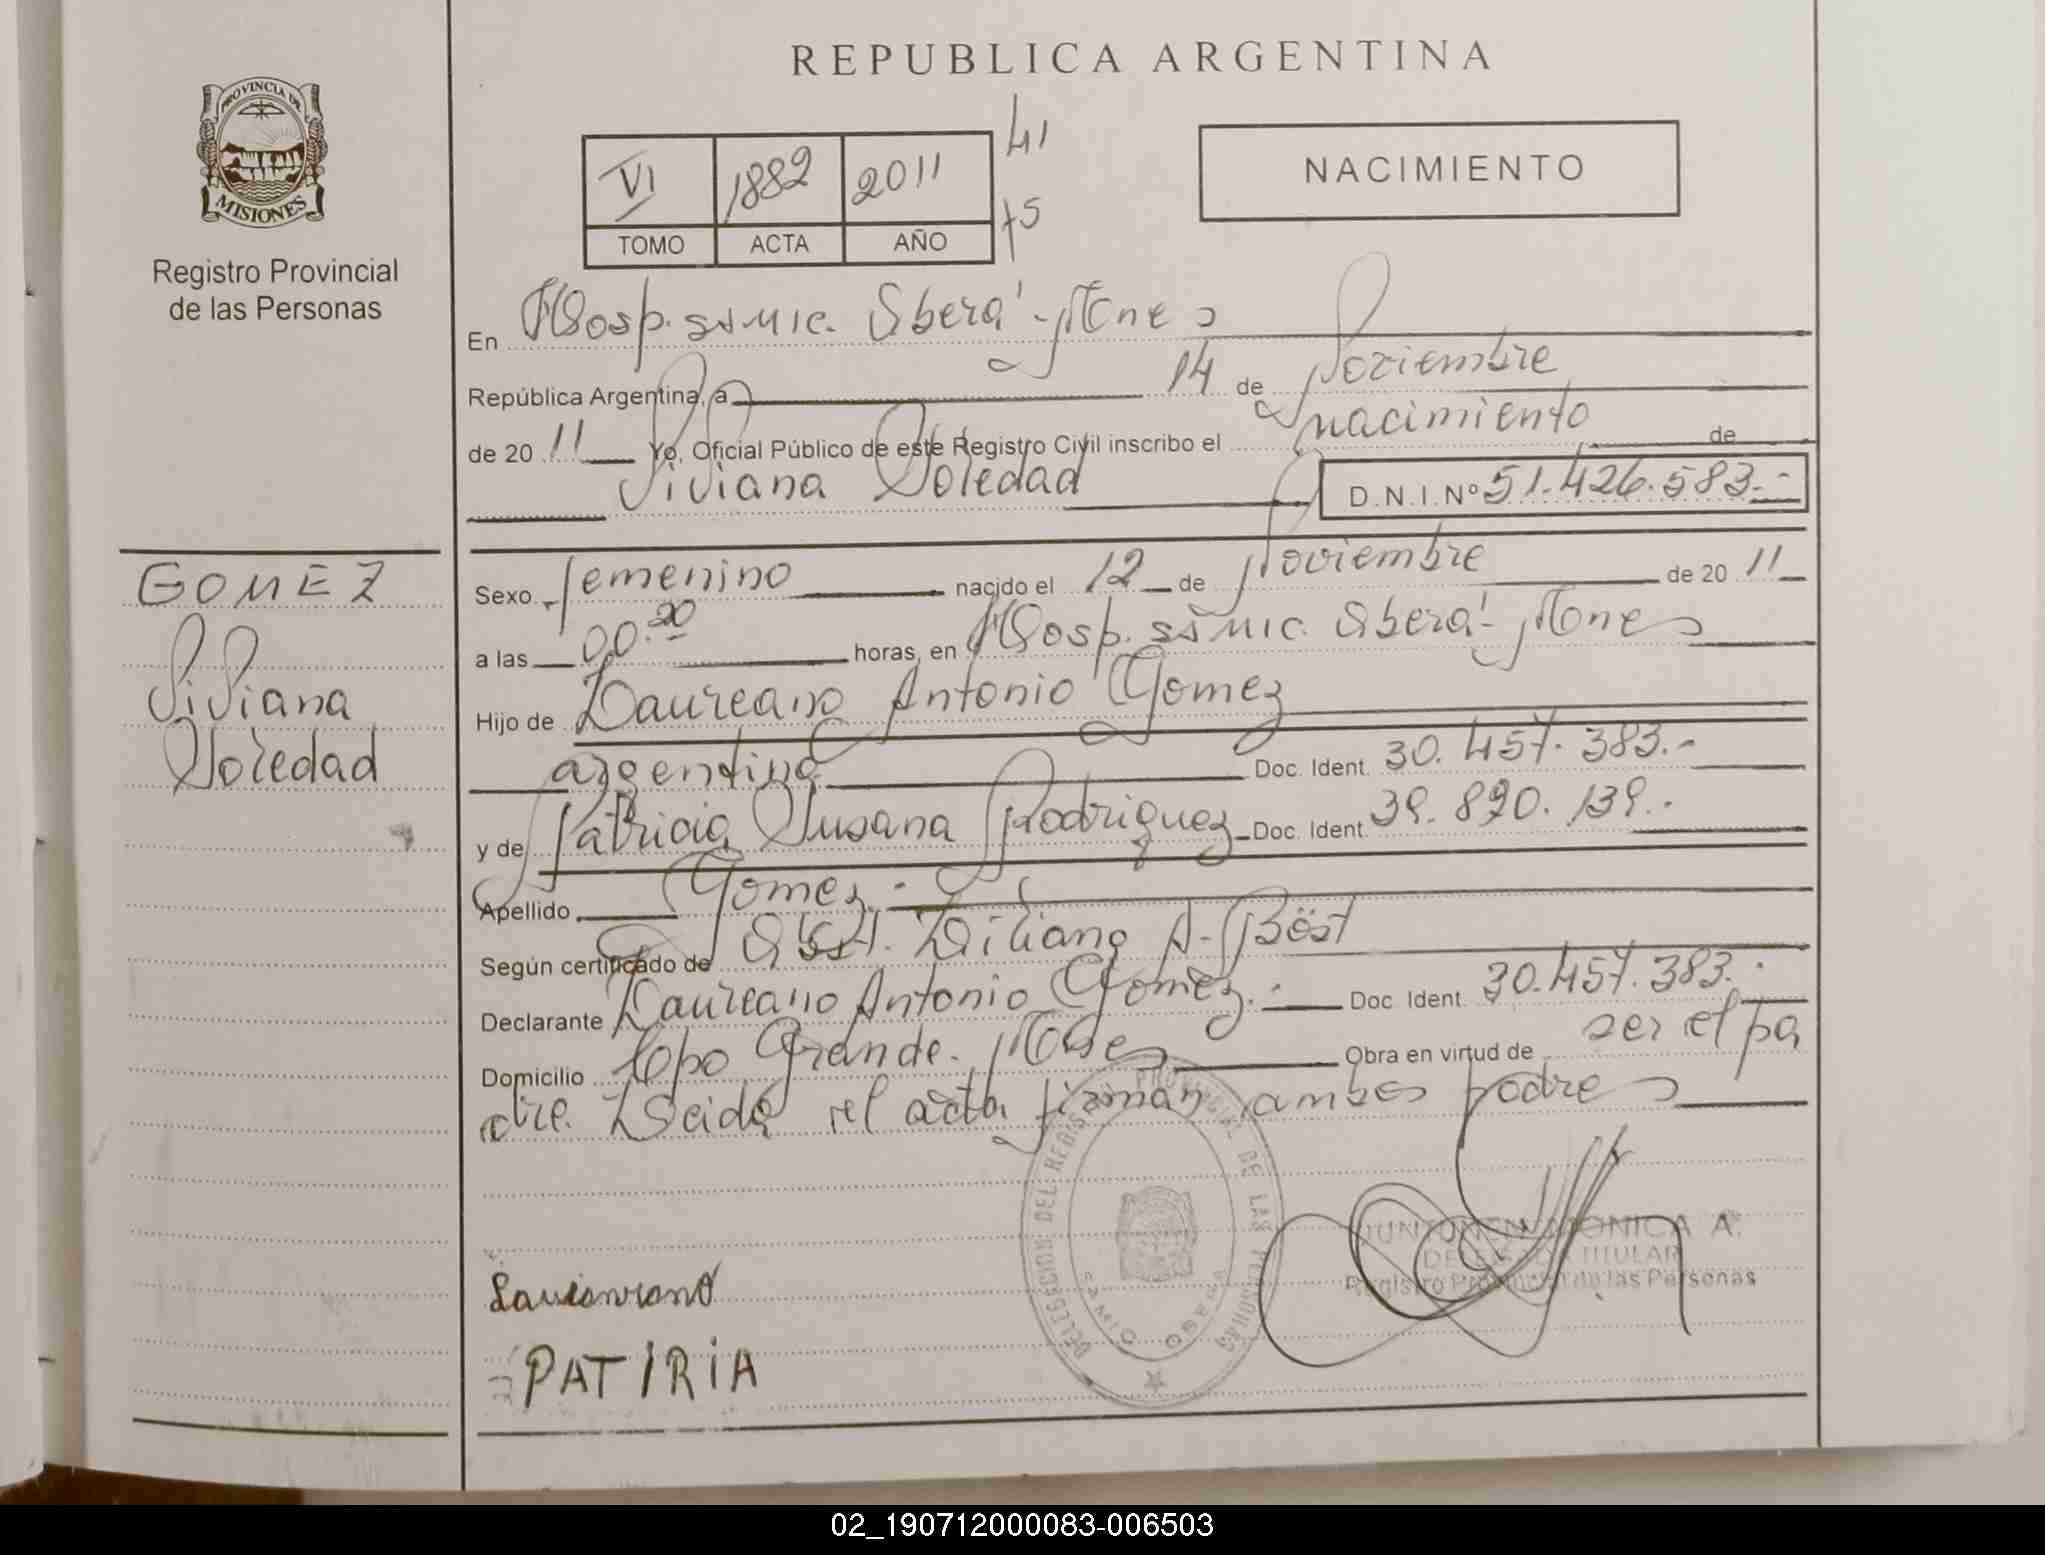 REPUBLICA ARGENTINA
PROVINCIA DE
MISIONES
Registro Provincial
de las Personas
VI 1882 2011
TOMO ACTA AÑO
41
75
NACIMIENTO
En Hosp. SAMIC. Oberá - Mnes
República Argentina, a 14 de Noviembre
de 20 11 Yo, Oficial Público de este Registro Civil inscribo el nacimiento de
Viviana Soledad D.N.I. Nº 51.426.583.-
GOMEZ
Viviana
Soledad
Sexo femenino nacido el 12 de Noviembre de 20 11
a las 00.20 horas, en Hosp. SAMIC. Oberá - Mnes
Hijo de Laureano Antonio Gomez
argentino Doc. Ident. 30.457.383.-
y de Patricia Susana Rodriguez Doc. Ident. 39.820.139.-
Apellido Gomez.-
Según certificado de Obst. Liliana A. Böst
Declarante Laureano Antonio Gomez.- Doc. Ident. 30.457.383.-
Domicilio Cpo Grande. Mnes Obra en virtud de ser el pa
dre. Leida el acta firman ambos padres
DELEGACION DEL REGISTRO PROVINCIAL DE LAS PERSONAS
SAMIC OBERA
MONICA A.
DELEGADA TITULAR
Registro Provincial de las Personas
PATIRIA
02_190712000083-006503